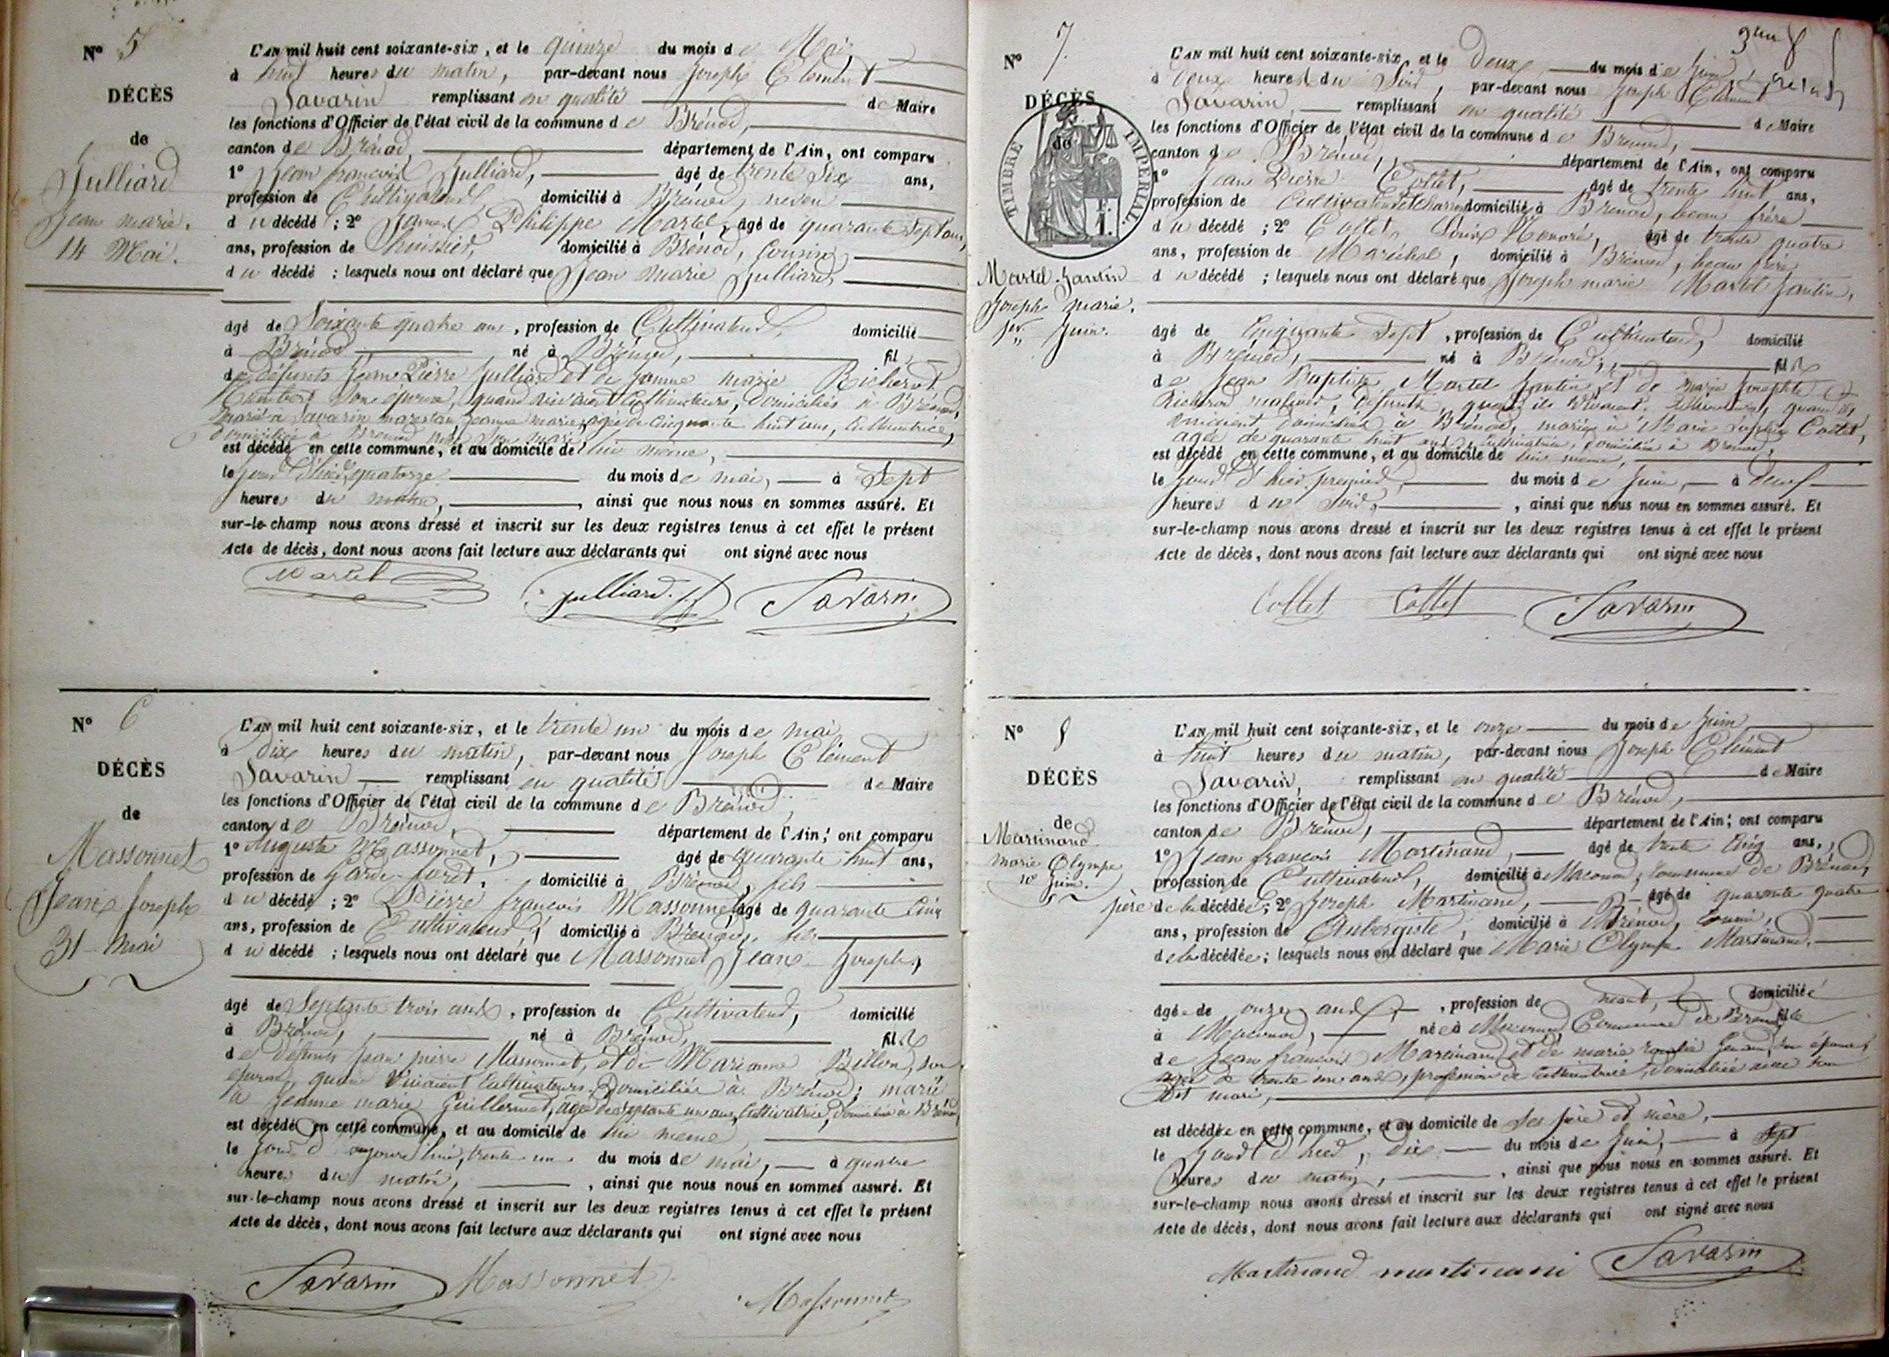 N° 5
DÉCÈS
de
Julliard
Jean marie.
14 Mai.
L'AN mil huit cent soixante-six, et le quinze du mois de Mai
à huit heures du matin, par-devant nous Joseph Clément
Savarin remplissant en qualité de Maire
les fonctions d'Officier de l'état civil de la commune de Brénod,
canton de Brénod, département de l'Ain, ont comparu
1° Jean françois Julliard, âgé de trente six ans,
profession de Cultivateur domicilié à Brénod, neveu
du décédé ; 2° Philippe Martel, âgé de quarante sept ans,
ans, profession de huissier, domicilié à Brénod, Cousin
du décédé ; lesquels nous ont déclaré que Jean marie Julliard,
âgé de Soixante quatre ans, profession de Cultivateur, domicilié
à Brénod né à Brénod, fils
de défunts Jean Pierre Julliard et de Jeanne marie Richerot
son épouse, quand vivaient Cultivateurs, domiciliés à Brénod,
marié à Savarin marestan, Jeanne marie, agée de Cinquante huit ans, Cultivatrice,
domiciliée à Brénod
est décédé en cette commune, et au domicile de lui même,
le jour d'hier quatorze du mois de mai, à Sept
heures du matin, ainsi que nous nous en sommes assuré. Et
sur-le-champ nous avons dressé et inscrit sur les deux registres tenus à cet effet le présent
Acte de décès, dont nous avons fait lecture aux déclarants qui ont signé avec nous
Martel Julliard Savarin
N° 6
DÉCÈS
de
Massonnet
Jean Joseph
31 Mai
L'AN mil huit cent soixante-six, et le trente un du mois de mai
à dix heures du matin, par-devant nous Joseph Clément
Savarin remplissant en qualité de Maire
les fonctions d'Officier de l'état civil de la commune de Brénod,
canton de Brénod, département de l'Ain, ont comparu
1° Auguste Massonnet, âgé de quarante huit ans,
profession de Garde-forêt, domicilié à Brénod, fils
du décédé ; 2° Pierre françois Massonnet âgé de quarante Cinq
ans, profession de Cultivateur, domicilié à Brénod, fils
du décédé ; lesquels nous ont déclaré que Massonnet Jean Joseph,
âgé de Septante trois ans, profession de Cultivateur, domicilié
à Brénod, né à Brénod, fils
de défunts Jean pierre Massonnet, et de Marianne Billon, son
épouse, quand vivaient Cultivateurs, Domiciliés à Brénod; marié
à Jeanne marie Guillermet, âgée de septante un ans, Cultivatrice, domiciliée à Brénod,
est décédé en cette commune, et au domicile de lui même
le jour d'aujourd'hui, trente un du mois de mai, à quatre
heures du matin, ainsi que nous nous en sommes assuré. Et
sur-le-champ nous avons dressé et inscrit sur les deux registres tenus à cet effet le présent
Acte de décès, dont nous avons fait lecture aux déclarants qui ont signé avec nous
Savarin Massonnet
Massonnet
3eme
N° 7.
DÉCÈS
de
TIMBRE IMPÉRIAL
Martel Jantin
Joseph marie.
1er Juin.
L'AN mil huit cent soixante-six, et le Deux du mois de Juin
à Deux heures du Soir, par-devant nous Joseph Clément
Savarin, remplissant en qualité de Maire
les fonctions d'Officier de l'état civil de la commune de Brénod,
canton de Brénod, département de l'Ain, ont comparu
1° Jean Pierre Collet, âgé de trente huit ans,
profession de Cultivateur domicilié à Brénod, beau frère
du décédé ; 2° Collet, Louis Honoré, âgé de trente quatre
ans, profession de Maréchal, domicilié à Brénod, beau frère
du décédé ; lesquels nous ont déclaré que Joseph marie Martel Jantin,
âgé de Cinquante Sept, profession de Cultivateur, domicilié
à Brénod, né à Brénod, fils
de Jean Baptiste Martel Jantin et de marie Josephte
défunts, quand ils vivaient
domiciliés à Brénod, marié à Marie Collet,
agée de quarante huit ans, Cultivatrice, domiciliée à Brénod,
est décédé en cette commune, et au domicile de lui même,
le jour d'hier, premier, du mois de Juin, à neuf
heures du Soir, ainsi que nous nous en sommes assuré. Et
sur-le-champ nous avons dressé et inscrit sur les deux registres tenus à cet effet le présent
Acte de décès, dont nous avons fait lecture aux déclarants qui ont signé avec nous
Collet Collet Savarin
N° 8
DÉCÈS
de
Martinand
marie Olympe
10 Juin.
L'AN mil huit cent soixante-six, et le onze du mois de Juin
à huit heures du matin, par-devant nous Joseph Clément
Savarin, remplissant en qualité de Maire
les fonctions d'Officier de l'état civil de la commune de Brénod,
canton de Brénod, département de l'Ain, ont comparu
1° Jean françois Martinand, âgé de trente Cinq ans,
profession de Cultivateur, domicilié à Macconod, Commune de Brénod,
père de la décédée ; 2° Joseph Martinand, âgé de quarante quatre
ans, profession de Aubergiste, domicilié à Brénod, Cousin,
de la décédée ; lesquels nous ont déclaré que Marie Olympe Martinand,
âgée de onze ans, profession de néant, domiciliée
à Macconod, née à Macconod Commune de Brénod, fille
de Jean françois Martinand et de marie son épouse
agée de trente un ans, profession de Cultivatrice, domiciliée avec son
dit mari,
est décédée en cette commune, et au domicile de Ses père et mère,
le jour d'hier, dix du mois de Juin, à Sept
heures du matin, ainsi que nous nous en sommes assuré. Et
sur-le-champ nous avons dressé et inscrit sur les deux registres tenus à cet effet le présent
Acte de décès, dont nous avons fait lecture aux déclarants qui ont signé avec nous
Martinand martinand Savarin